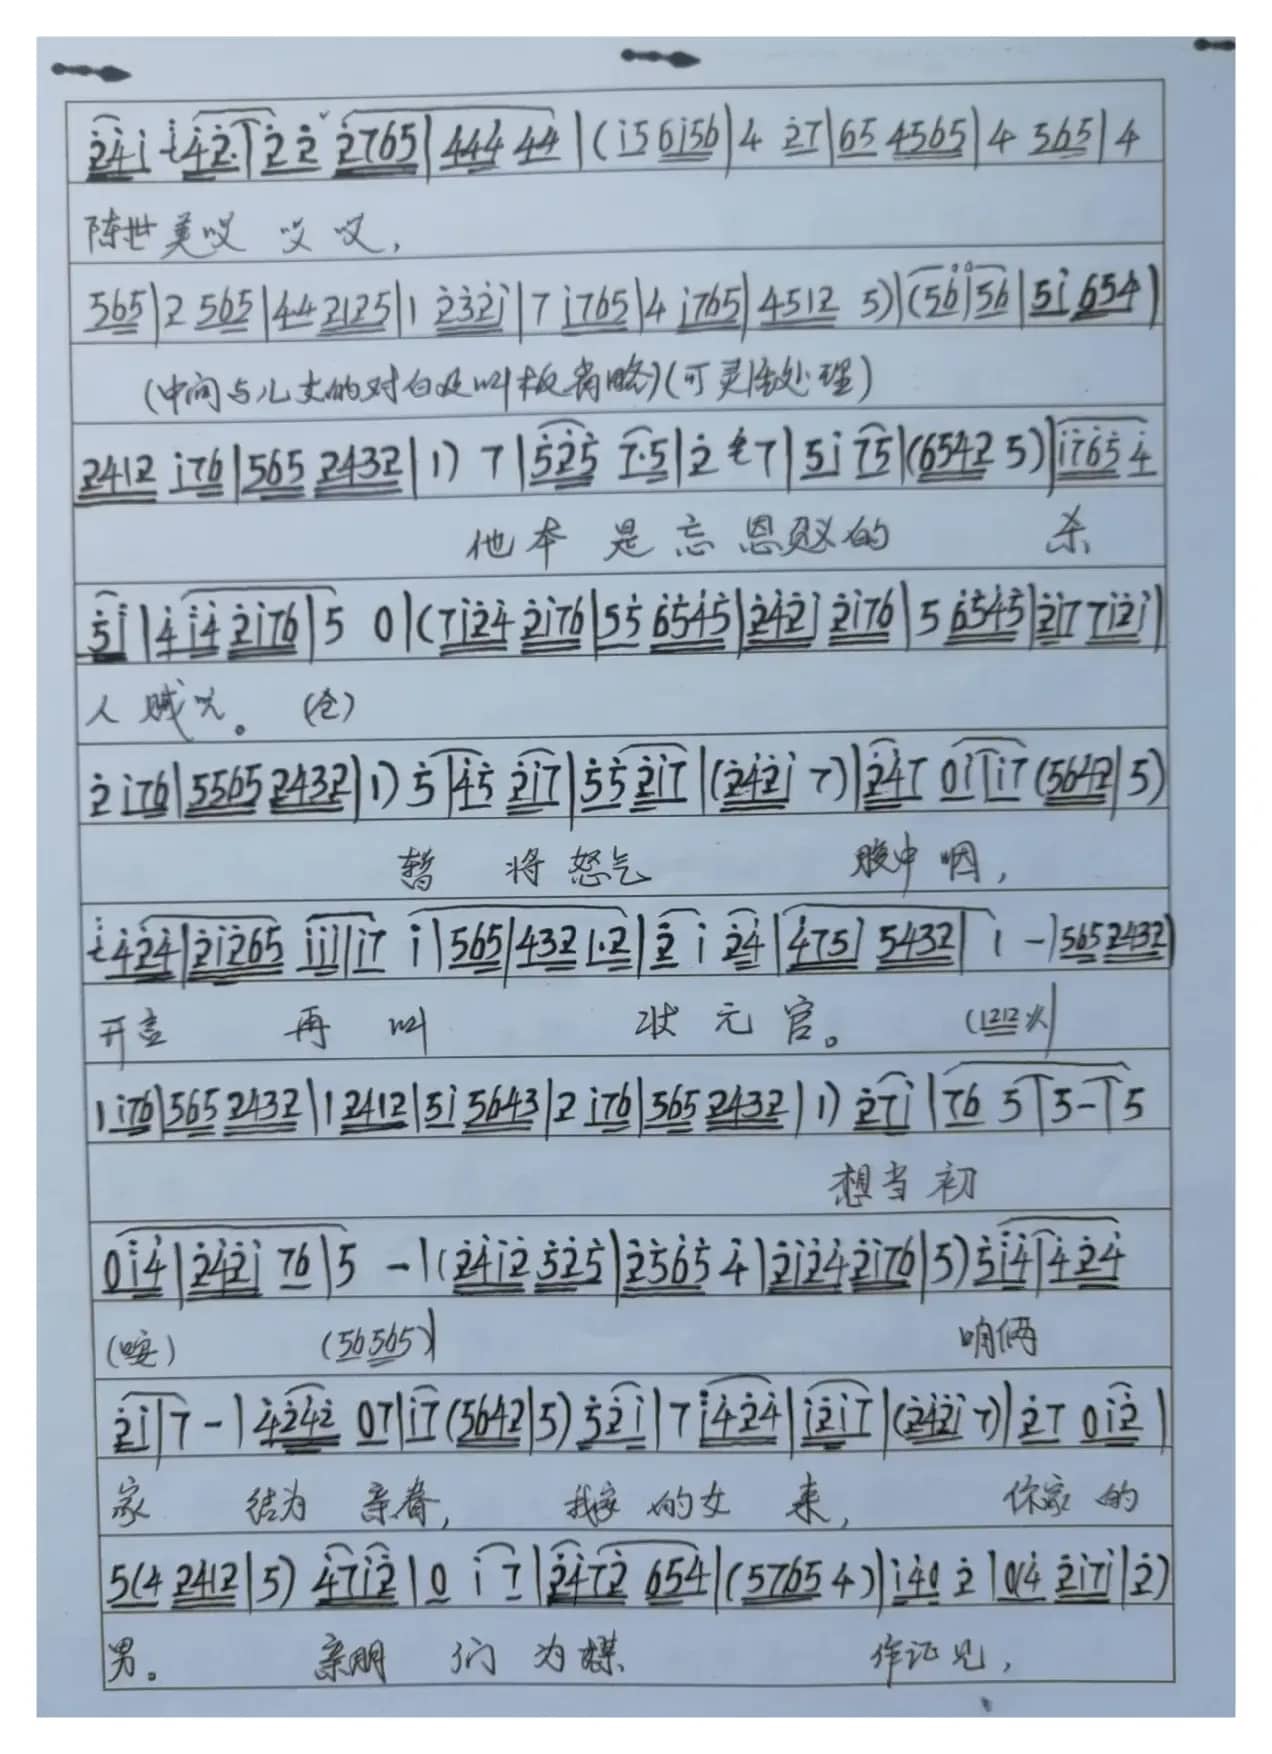 2̇4̇i 4̇2̇.|2̇ 2̇ 2̇765|444 44|(i5 6i56|4 2̇7|65 4565|4 565|4
陈世美哎 哎 哎,
565|2 565|44 2125|1 2̇3̇2̇i|7 i765|4 i765|4512 5)|(56|56|5i 654)
(中间与儿女的对白及叫板省略)(可灵活处理)
2412 i76|565 2432|1) 7|5̇2̇5̇ 7.5|2̇ 7|5i 75|(6542 5)|i765 4̇
他本是忘恩败义的 杀
5̇i|4̇ i4̇ 2̇i76|5 0|(7i2̇4̇ 2̇i76|5̇5̇ 6̇5̇4̇5̇|2̇4̇2̇i 2̇i76|5 6̇5̇4̇5̇|2̇i7 7i2̇i|
人贼呀。 (仓)
2̇ i76|5565 2432|1) 5̇|4̇5̇ 2̇i7|5̇5̇ 2̇i7|(2̇4̇2̇i 7)|2̇4̇7 0i|i7 (5642|5)
暂 将 怒气 腹中咽,
4̇2̇4̇|2̇i2̇65 iii|i7 i|565|432 1.2|2̇ i 2̇4̇|4̇75 5432|1 -|565 2432|
开言 再 叫 状元官。 (1212 火|
1 i76|565 2432|1 2412|5i 5643|2 i76|565 2432|1) 2̇7i|76 5|5-|5
想当初
0i4̇|2̇4̇2̇i 76|5 -|(2̇4̇i2̇ 5̇2̇5̇|2̇5̇6̇5̇ 4̇|2̇i2̇4̇ 2̇i76|5) 5̇i4̇|4̇2̇4̇
(唉) (56565)| 咱俩
2̇i|7 -|4̇2̇4̇2̇ 07|i7 (5642|5) 5̇2̇i|7 i4̇2̇4̇|i2̇i7|(2̇4̇2̇i 7)|2̇7 0i2̇|
家 结为 亲眷, 我家的女 来, 你家的
5(4 2412|5) 4̇7i2̇|0 i 7|2̇4̇72̇ 654|(5765 4)|i4̇0 2̇|0(4̇ 2̇i7i|2̇)
男。 亲朋 们 为媒 作证见,